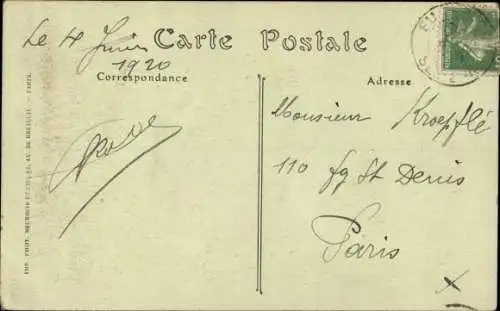 Le 4 Juin
1920
Carte Postale
Correspondance
Adresse
Monsieur Kroepflé
110 fg St Denis
Paris